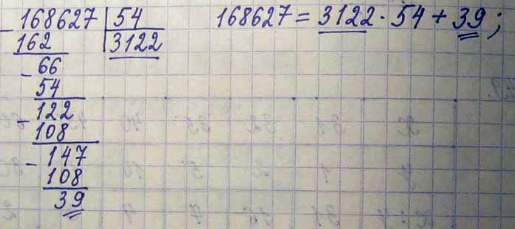 - 168627 | 54
162 | 3122
- 66
54
- 122
108
- 147
108
39
168627 = 3122 · 54 + 39;